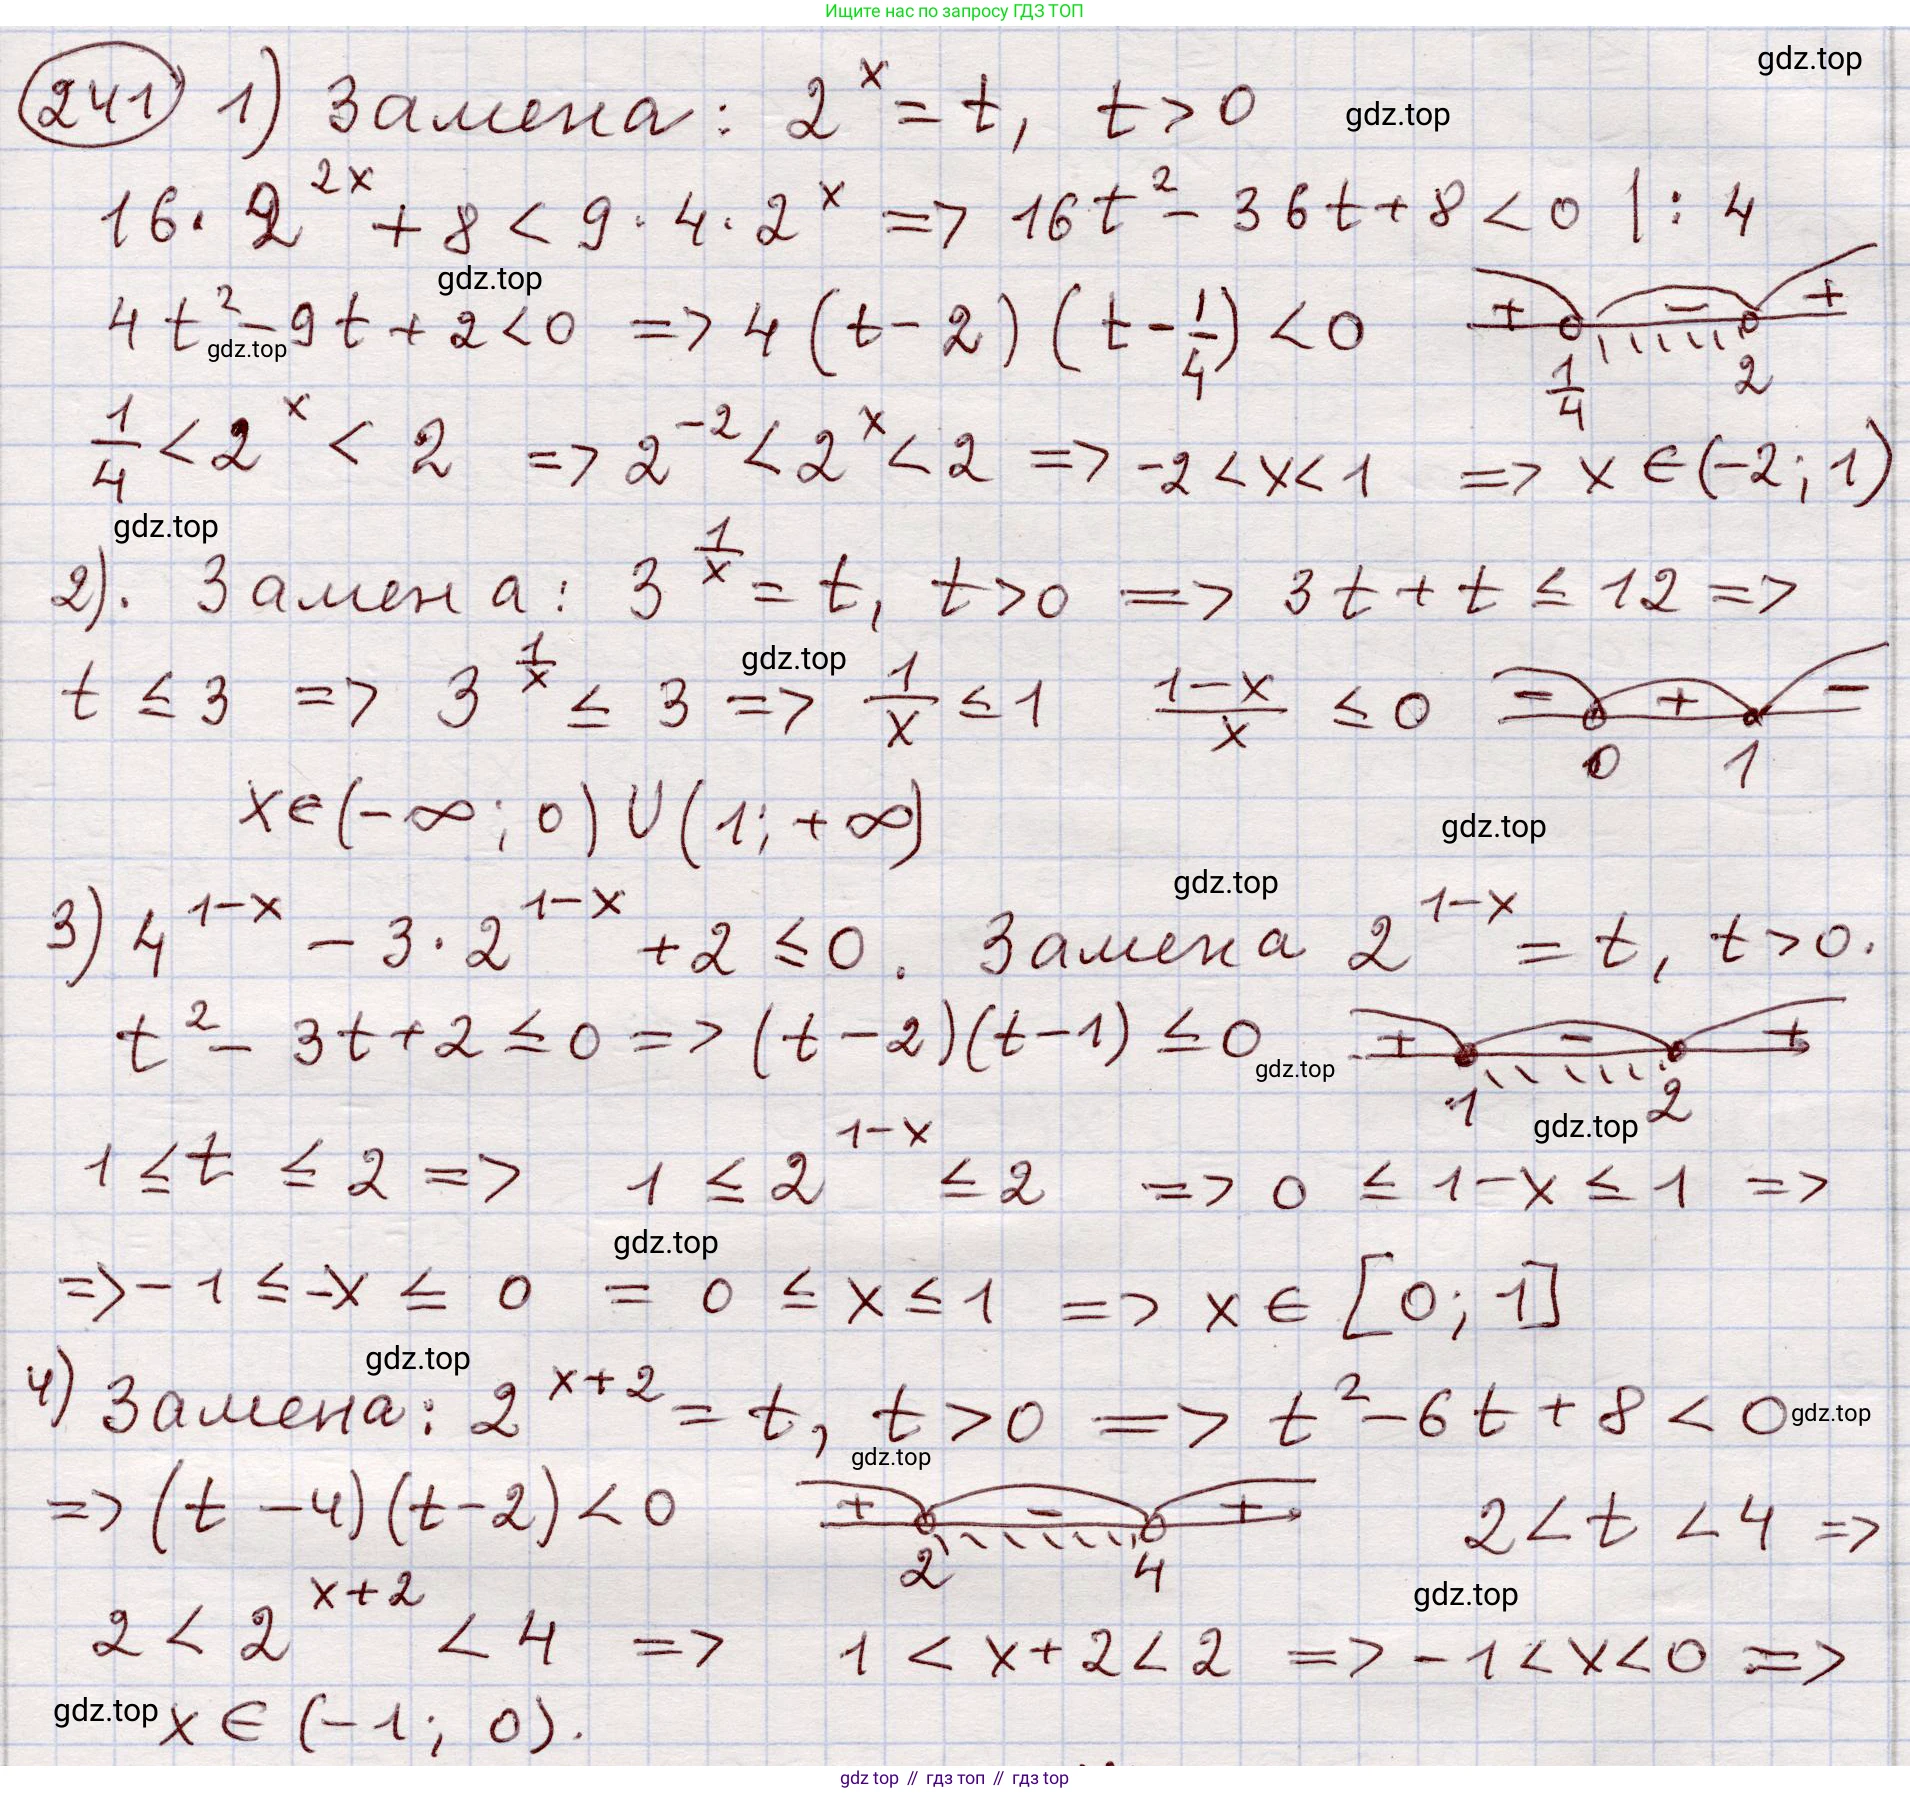 Ищите нас по запросу ГДЗ ТОП
gdz.top
241 1) Замена: 2^x = t, t > 0
gdz.top
16 · 2^{2x} + 8 < 9 · 4 · 2^x => 16t^2 - 36t + 8 < 0 | : 4
gdz.top
4t^2 - 9t + 2 < 0 => 4(t - 2)(t - 1/4) < 0 + - + 1/4 2
gdz.top
1/4 < 2^x < 2 => 2^{-2} < 2^x < 2 => -2 < x < 1 => x ∈ (-2; 1)
gdz.top
2). Замена: 3^{1/x} = t, t > 0 => 3t + t ≤ 12 =>
gdz.top
t ≤ 3 => 3^{1/x} ≤ 3 => 1/x ≤ 1 (1-x)/x ≤ 0 - + - 0 1
x ∈ (-∞; 0) ∪ (1; +∞)
gdz.top
gdz.top
3) 4^{1-x} - 3 · 2^{1-x} + 2 ≤ 0. Замена 2^{1-x} = t, t > 0.
t^2 - 3t + 2 ≤ 0 => (t - 2)(t - 1) ≤ 0 + - + 1 2
gdz.top
gdz.top
1 ≤ t ≤ 2 => 1 ≤ 2^{1-x} ≤ 2 => 0 ≤ 1 - x ≤ 1 =>
gdz.top
=> -1 ≤ -x ≤ 0 = 0 ≤ x ≤ 1 => x ∈ [0; 1]
gdz.top
4) Замена: 2^{x+2} = t, t > 0 => t^2 - 6t + 8 < 0
gdz.top
gdz.top
=> (t - 4)(t - 2) < 0 + - + 2 4 2 < t < 4 =>
gdz.top
2 < 2^{x+2} < 4 => 1 < x + 2 < 2 => -1 < x < 0 =>
gdz.top
x ∈ (-1; 0).
gdz top // гдз топ // гдз top